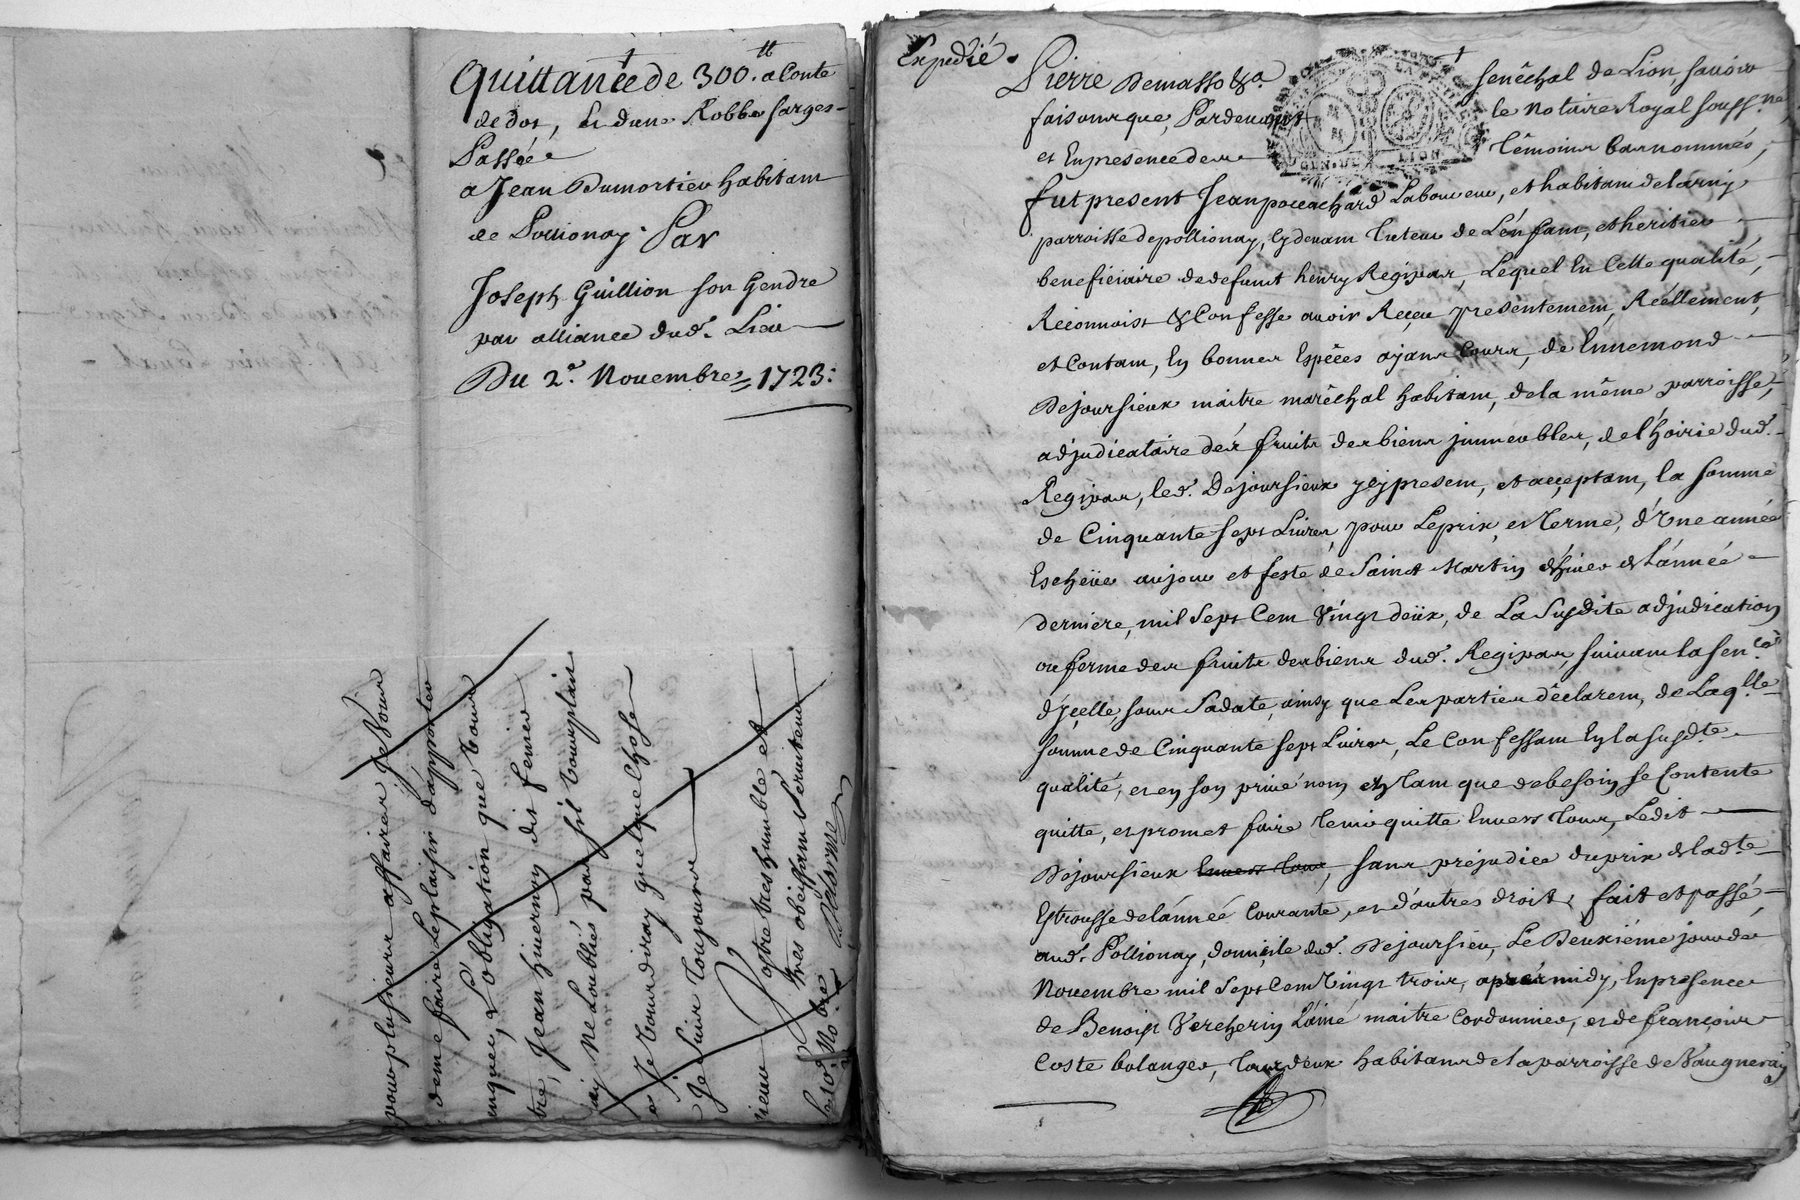 Quittance de 300.tt a Conte
de dot, Et dune Robbe sarges
Passée
a Jean Dumortier habitant
de Pollionay. Par
Joseph Guillion son Gendre
par alliance dud. Lieu
Du 2e. Novembre 1723:
pour plusieurs affaires je Vous
deme faire Le plaisir d'apporter
L'obligation que Vous
Jean hivernoy dit fenier
ne Loubliés pas s'il vous plait
je Vous diray quelque Chose
Je Suis Toujours
Vostre tres humble et
tres obeissant Serviteur
Delorme
le 10e. No.bre
Expedié.
Pierre Demasso &a. Senêchal de Lion, savoir
faisons que, Pardevant le Notaire Royal souss.né,
et En presence des Têmoins bas nommés,
GEN. DE LION
fut present Jean ponchard Laboureur, et habitant de Larny
parroisse de pollionay, Cy devant Tuteur de L'énfant, et heritier
beneficiaire de defunt henry Regipas, Lequel En Cette qualité,
Reconnoist & Confesse avoir Reçeu presentement, Réellement,
et Contant, En bonnes Espêces ayans Cours, de Ennemond
Dejoursieux maitre marêchal habitant, de la même parroisse,
adjudicataire dés fruits des biens jmmeubles, de l'hoirie dud.
Regipas, led. Dejoursieux jcy present, et acçeptant, la somme
de Cinquante sept Livres, pour Le prix, et Terme, d'Une année
Escheüe au jour et feste de Saint Martin d'hiver de L'année
derniere, mil Sept Cent Vingt deüx, de La Susdite adjudication
ou ferme des fruits des biens dud. Regipas, suivant la sen.ce
d'jçelle, sous Sa date, ainsy que Les parties dêclarent, de Laq.lle
somme de Cinquante sept Livres, Le Confessant En la susd.te
qualité, et en son privé nom En tant que de besoin se Contente
quitte, et promet faire Tenir quitte Envers Tous, Ledit
Dejoursieux Envers Tous, sans préjudice du prix de lad.te
Estrousse de l'année Courante, et d'autres droits, fait et passé
aud. Pollionay, domiçile dud. Dejoursieu, Le Deuxiéme jour de
Novembre mil Sept Cent Vingt trois, aprés midy, En presence
de Benoist Vercherin L'aîné maitre Cordonnier, et de françois
Coste bolanger, Tous deux habitans de la parroisse de Vaugneray